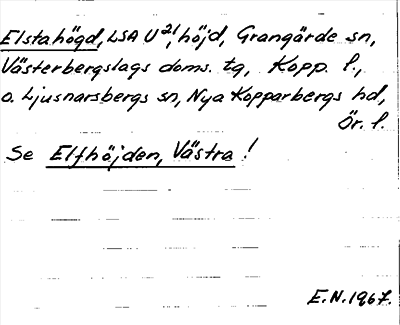 Elstahögd, LSA U21, höjd, Grangärde sn,
Västerbergslags doms. tg, Kopp. l.,
o. Ljusnarsbergs sn, Nya Kopparbergs hd,
Ör. l.
Se Elfhöjden, Västra !
E.N. 1967.